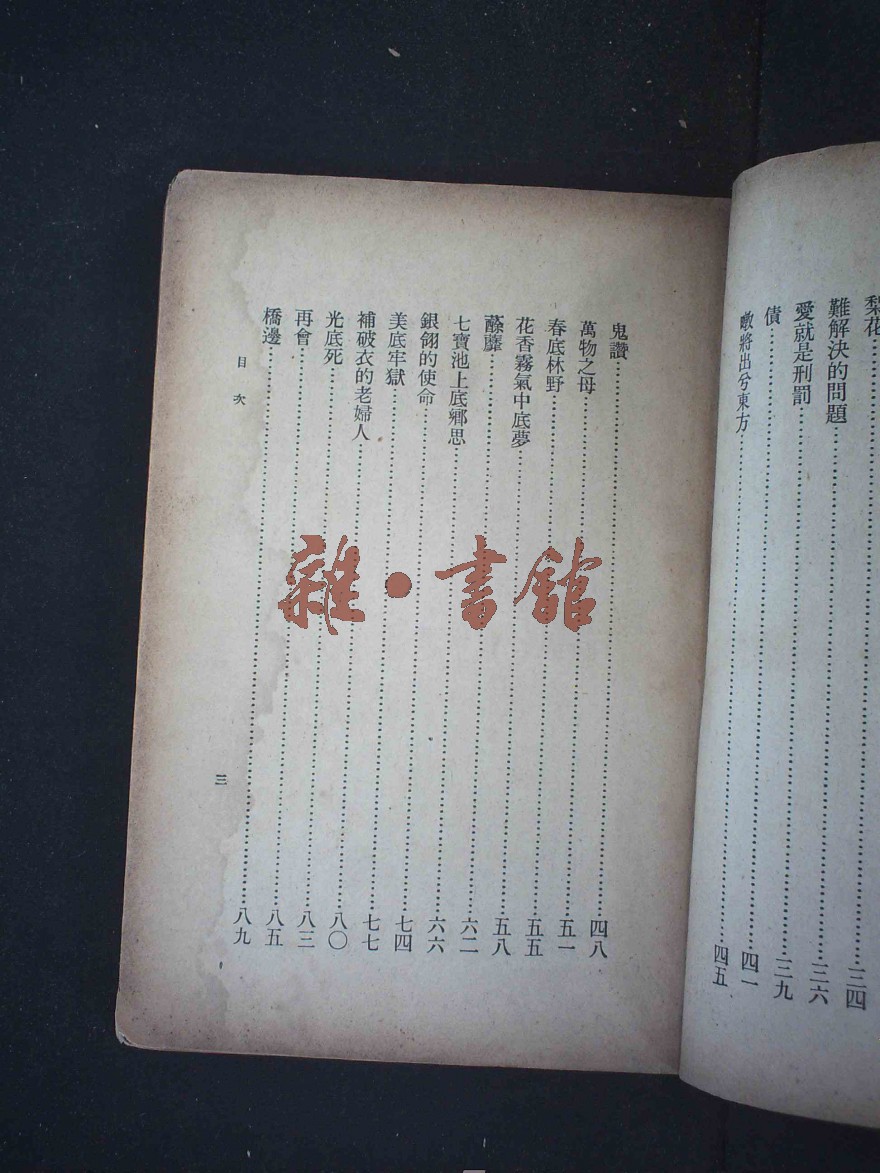 梨花……三四
難解決的問題……三六
愛就是刑罰……三九
債……四一
暾將出兮東方……四五
鬼讚……四八
萬物之母……五一
春底林野……五五
花香霧氣中底夢……五八
蘼……六二
七寶池上底鄉思……六六
銀翎的使命……七四
美底牢獄……七七
補破衣的老婦人……八〇
光底死……八三
再會……八五
橋邊……八九
目次
三
雜·書館